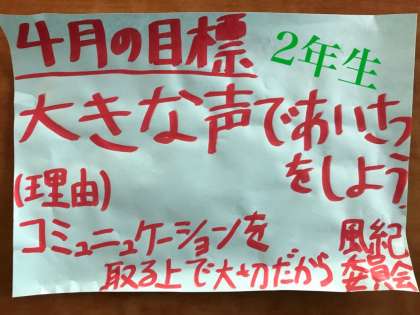 4月の目標
2年生
大きな声であいさつ
をしよう
(理由)
コミュニュケーションを
取る上で大切だから
風紀
委員会